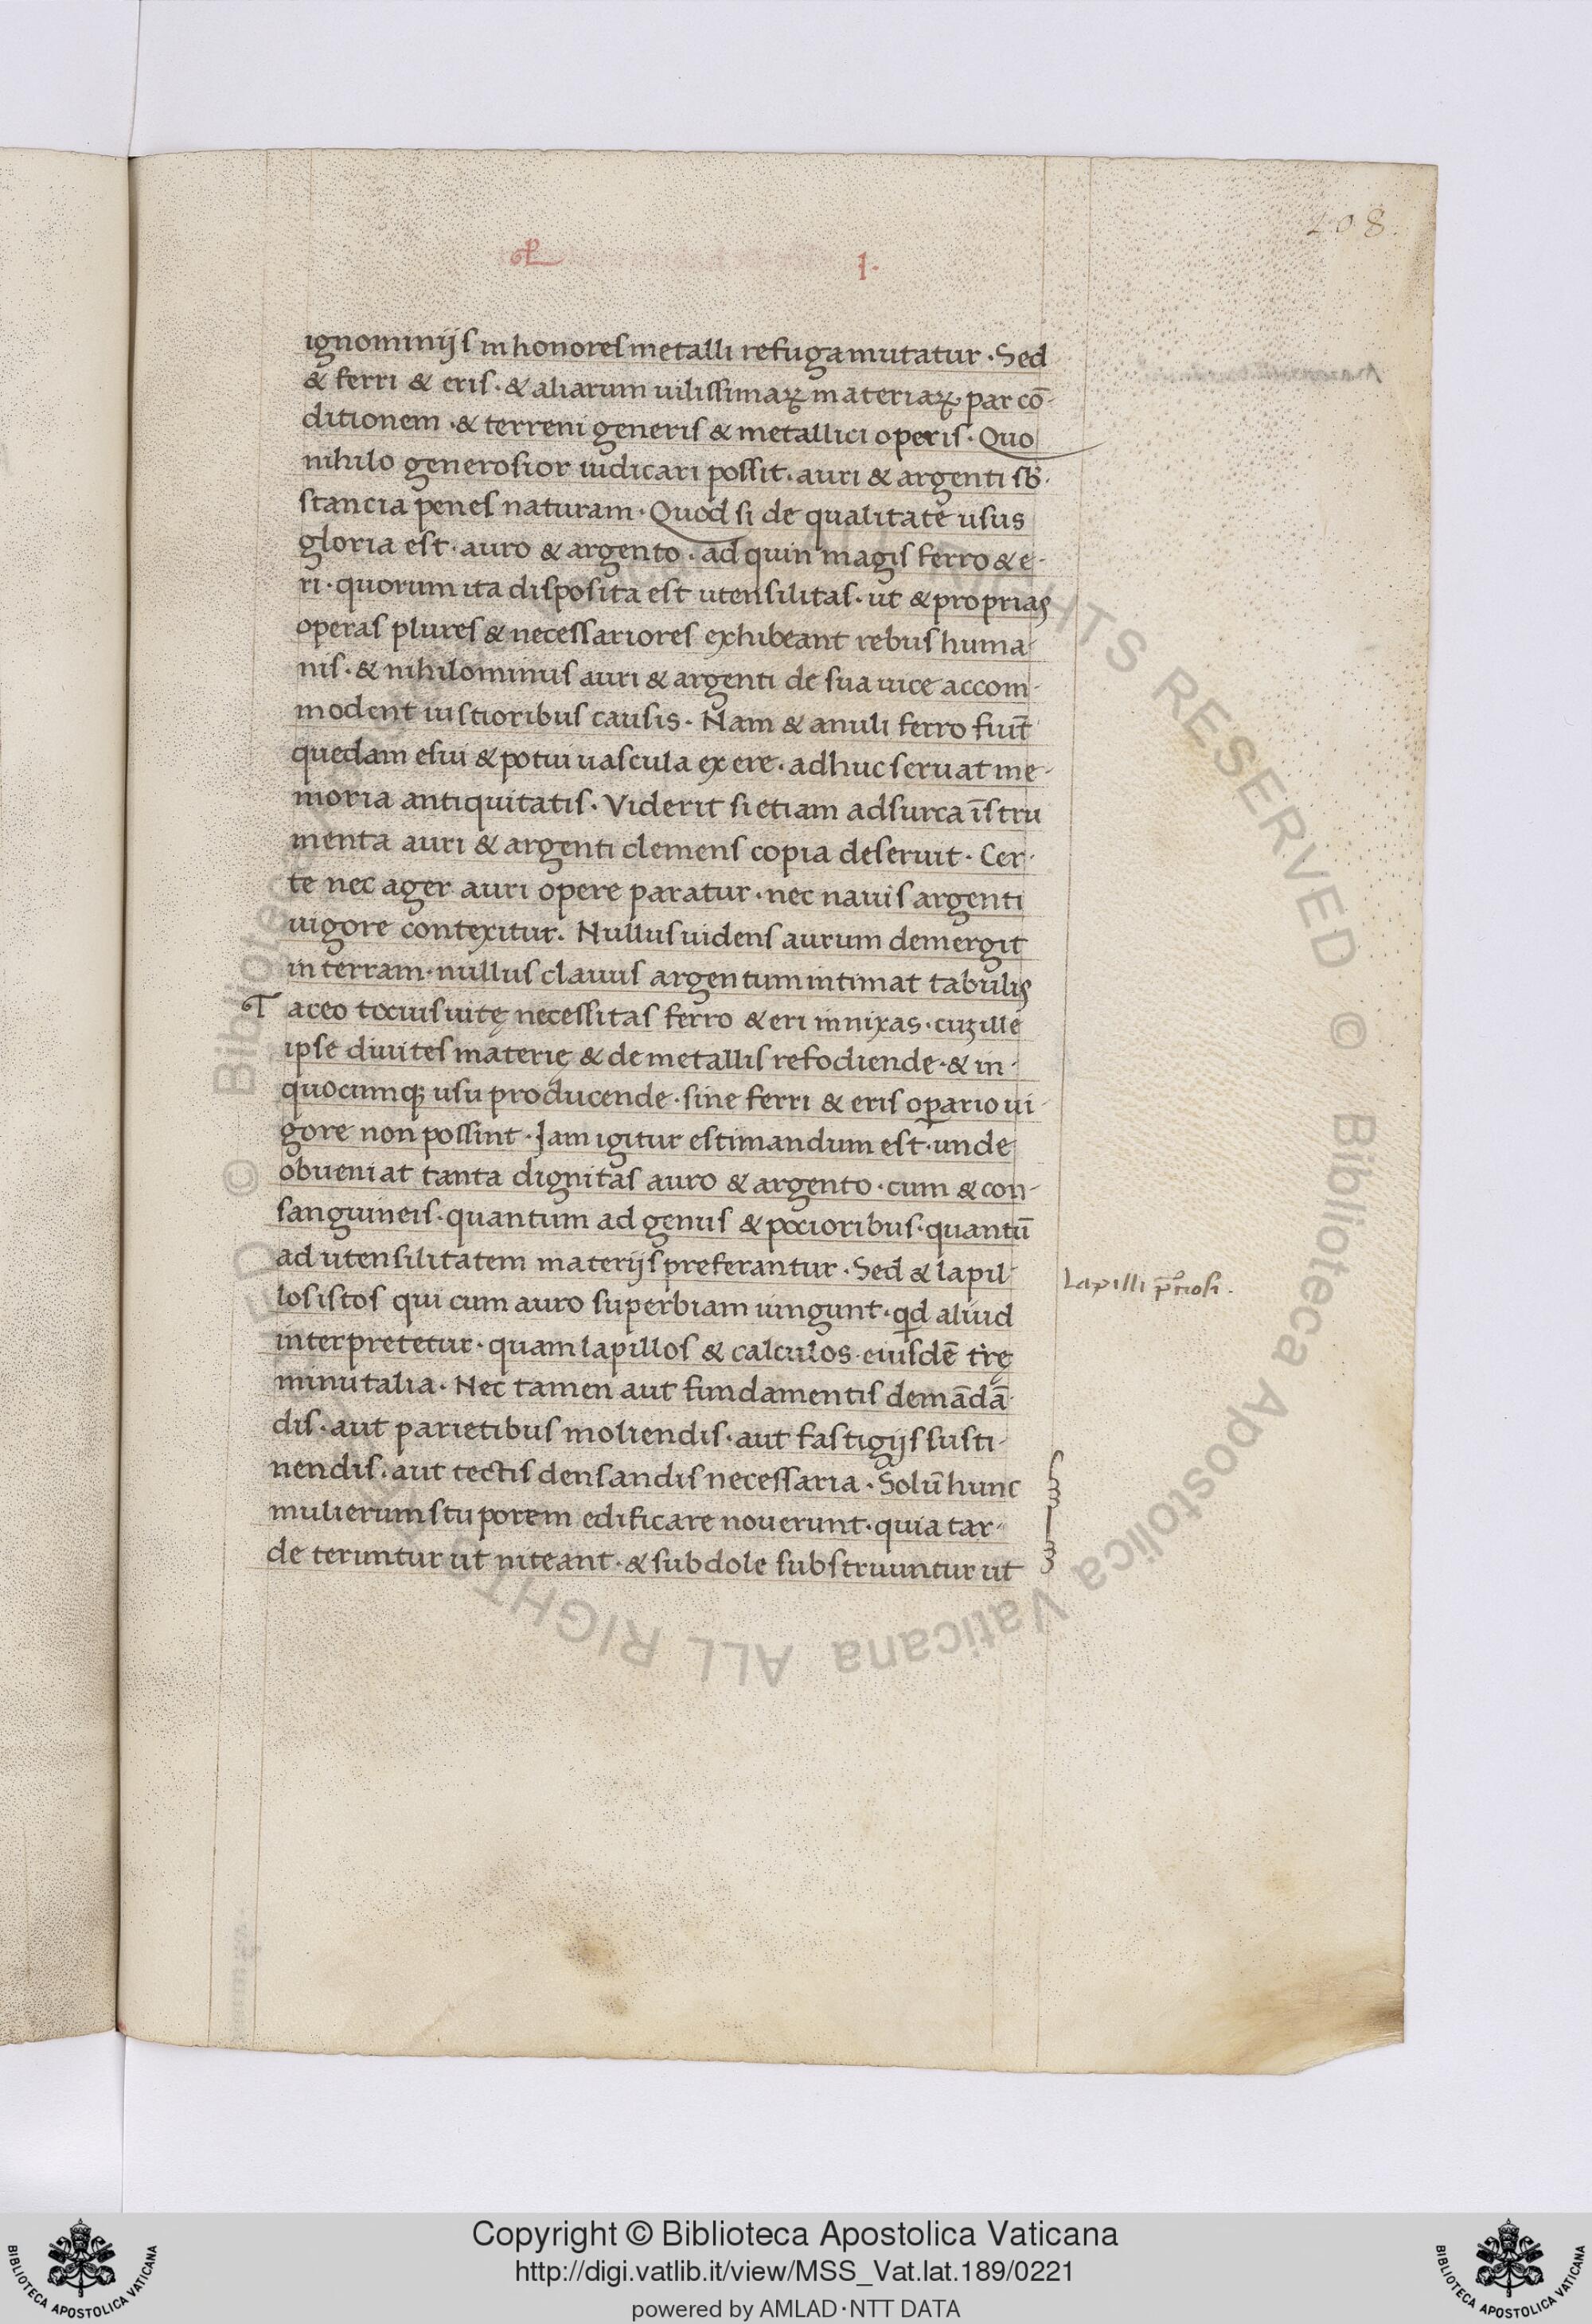 208.
L I.
ignominijs in honores metalli refuga mutatur. Sed
& ferri & eris. & aliarum uilissimaꝝ materiaꝝ par cō-
ditionem. & terreni generis & metallici operis. Quo
nihilo generosior iudicari possit. auri & argenti sb-
stancia penes naturam. Quod si de qualitate usus
gloria est. auro & argento. ad quin magis ferro & e-
ri. quorum ita disposita est utensilitas. ut & proprias
operas plures & necessariores exhibeant rebus huma-
nis. & nihilominus auri & argenti de sua uice accom-
modent iustioribus causis. Nam & anuli ferro fiūt
quedam esui & potui uascula ex ere. adhuc seruat me-
moria antiquitatis. Viderit si etiam ad surca īstru
menta auri & argenti clemens copia deseruit. Cer-
te nec ager auri opere paratur. nec nauis argenti
uigore contexitur. Nullus uidens aurum demergit
in terram. nullus clauus argentum intimat tabulis
Taceo tocius uitę necessitas ferro & eri innixas. cuꝫ ille
ipse diuites materię & de metallis refodiende. & in-
quocumqꝫ usu producende. sine ferri & eris oꝑario ui-
gore non possint. Jam igitur estimandum est. unde
obueniat tanta dignitas auro & argento. cum & con-
sanguineis. quantum ad genus & pocioribus. quantū
ad utensilitatem materijs preferantur. Sed & lapil-
los istos qui cum auro superbiam uingunt. qd aliud
interpretetur. quam lapillos & calculos. eiusdē trę
minutalia. Nec tamen aut fundamentis demādā-
dis. aut parietibus moliendis. aut fastigijs susti-
nendis. aut tectis densandis necessaria. Solū hunc
mulierum stuporem edificare nouerunt. quia tar-
de teruntur ut niteant. & subdole substruuntur ut
Lapilli p̄tiosi.
© Biblioteca Apostolica Vaticana ALL RIGHTS RESERVED © Biblioteca Apostolica Vaticana ALL RIGHTS RESERVED
Copyright © Biblioteca Apostolica Vaticana
http://digi.vatlib.it/view/MSS_Vat.lat.189/0221
powered by AMLAD·NTT DATA
BIBLIOTECA APOSTOLICA VATICANA
BIBLIOTECA APOSTOLICA VATICANA